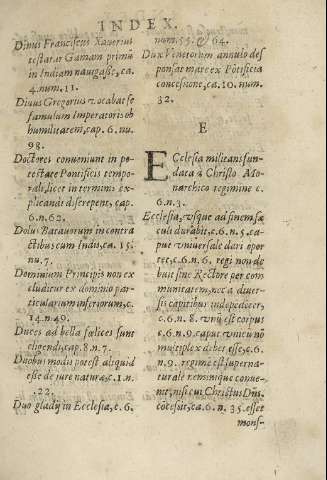 INDEX.
Divus Franciscus Xaverius
testatur Gamam primũ
in Indiam navigasse, ca.
4. num. 11.
Divus Gregorius vocabat se
famulum Imperatoris ob
humilitatem, cap. 6. nu.
98.
Doctores conveniunt in po-
testate Pontificis tempo-
rali, licet in terminis ex-
plicandi discrepent, cap.
6. n. 62.
Dolus Batavorum in contra
ctibus cum Indis, ca. 15.
nu. 7.
Dominium Principis non ex
cluditur ex dominio par-
ticularium inferiorum, c.
14. n. 49.
Duces ad bella fœlices sunt
eligendi, cap. 8. n. 7.
Duobus modis potest aliquid
esse de iure naturæ, c. 1. n.
22.
Duo gladij in Ecclesia, c. 6.
num. 55. & 64.
Dux Venetorum annulo des
ponsat mare ex Põtificia
concessione, ca. 10. num.
32.
E
ECclesia militans fun-
data à Christo Mo-
narchico regimine c.
6. n. 3.
Ecclesia, vsque ad finem sæ
culi durabit, c. 6. n. 5. ca-
put vniversale dari opor-
tet, c. 6. n. 6. regi non de
buit sine Rectore per com
munitatem, nec a diver-
sis capitibus independẽter,
c. 6. n. 8. vnũ est corpus
c. 6. n. 9. caput vnicũ nõ
multiplex debet esse, c. 6.
n. 9. regimẽ est superna-
turale neminique conve-
nit, nisi cui Christus Dñs
cõcessit, ca. 6. n. 35. esset
mons-